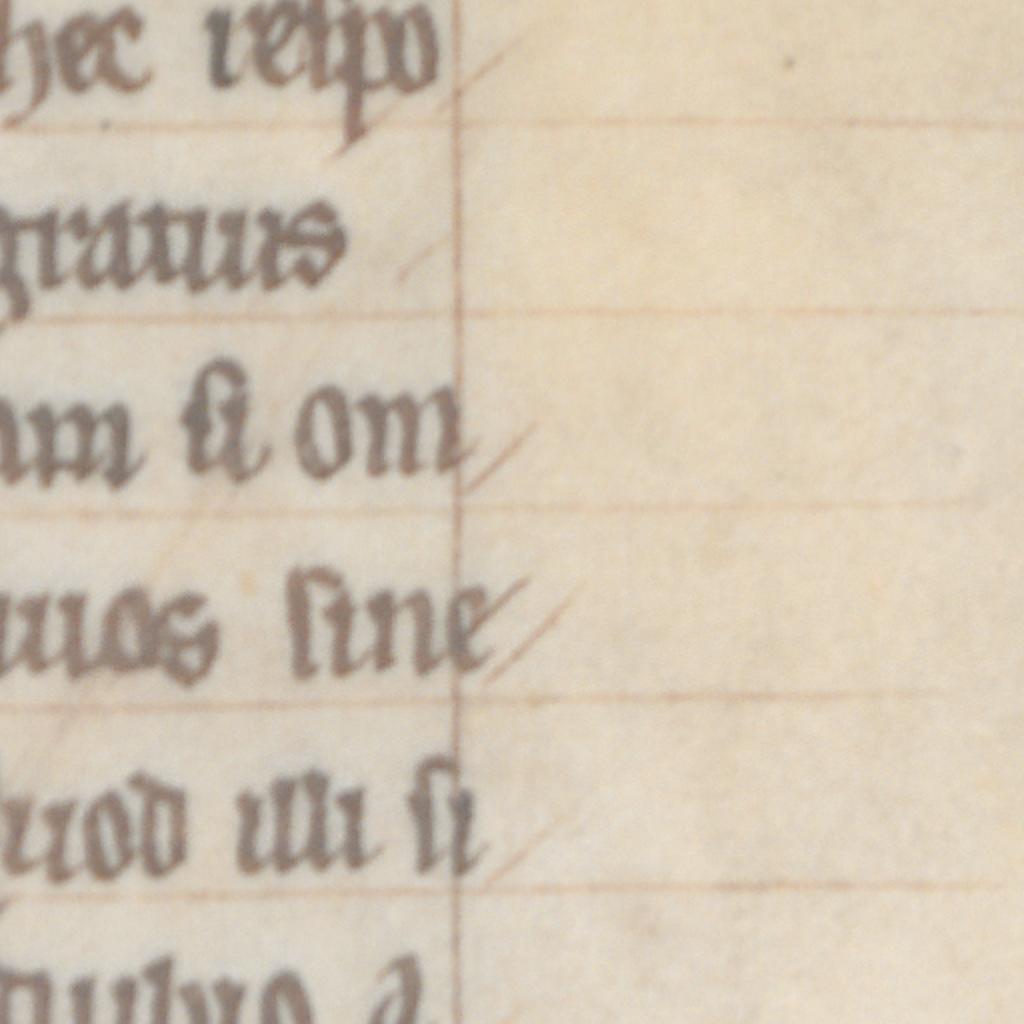 hec respo
gratius
am si om
uos sine
uod illi si